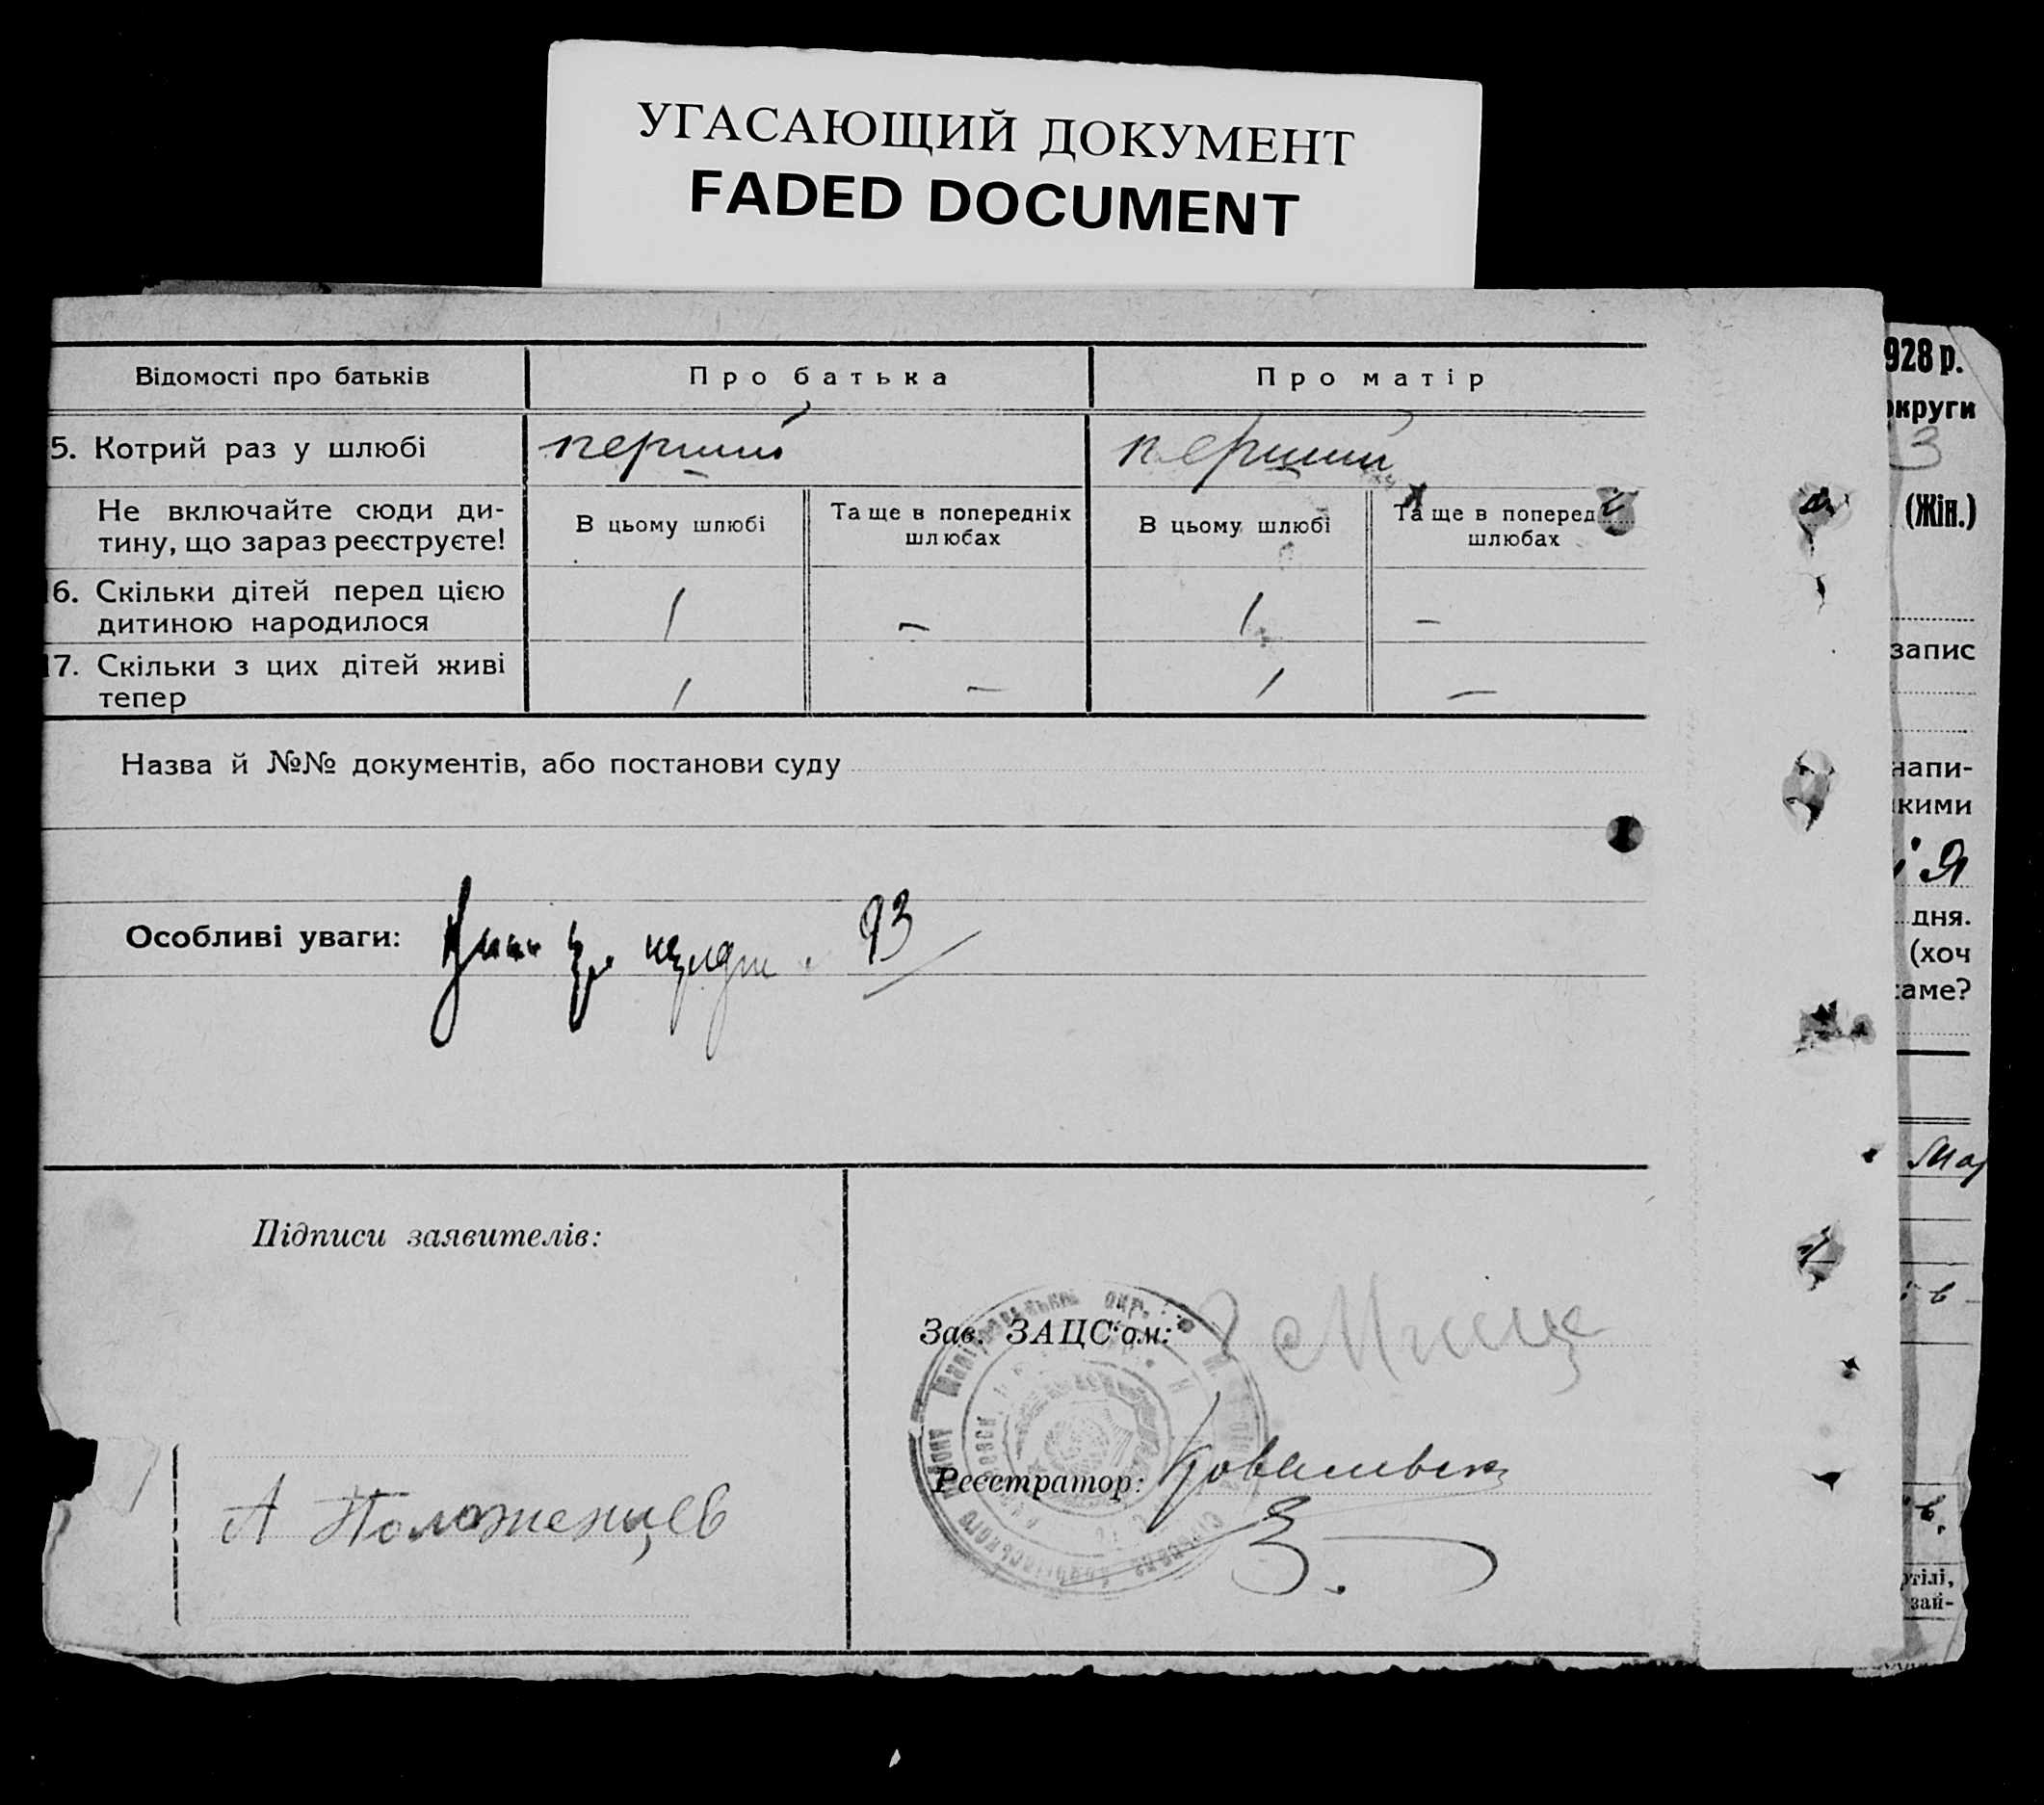 УГАСАЮЩИЙ ДОКУМЕНТ
FADED DOCUMENT
Відомості про батьків
Про батька
Про матір
5. Котрий раз у шлюбі
перший
перший
Не включайте сюди ди-
тину, що зараз реєструєте!
В цьому шлюбі
Та ще в попередніх
шлюбах
В цьому шлюбі
Та ще в поперед
шлюбах
6. Скільки дітей перед цією
дитиною народилося
1
–
1
–
17. Скільки з цих дітей живі
тепер
1
–
1
–
Назва й №№ документів, або постанови суду
Особливі уваги:
93
Підписи заявителів:
А Положенцев
Зав. ЗАЦС“ом:
Реєстратор:
928 р.
округи
3
(Жін.)
запис
напи-
кими
дня.
(хоч
саме?
в
в.
ртілі,
зай-